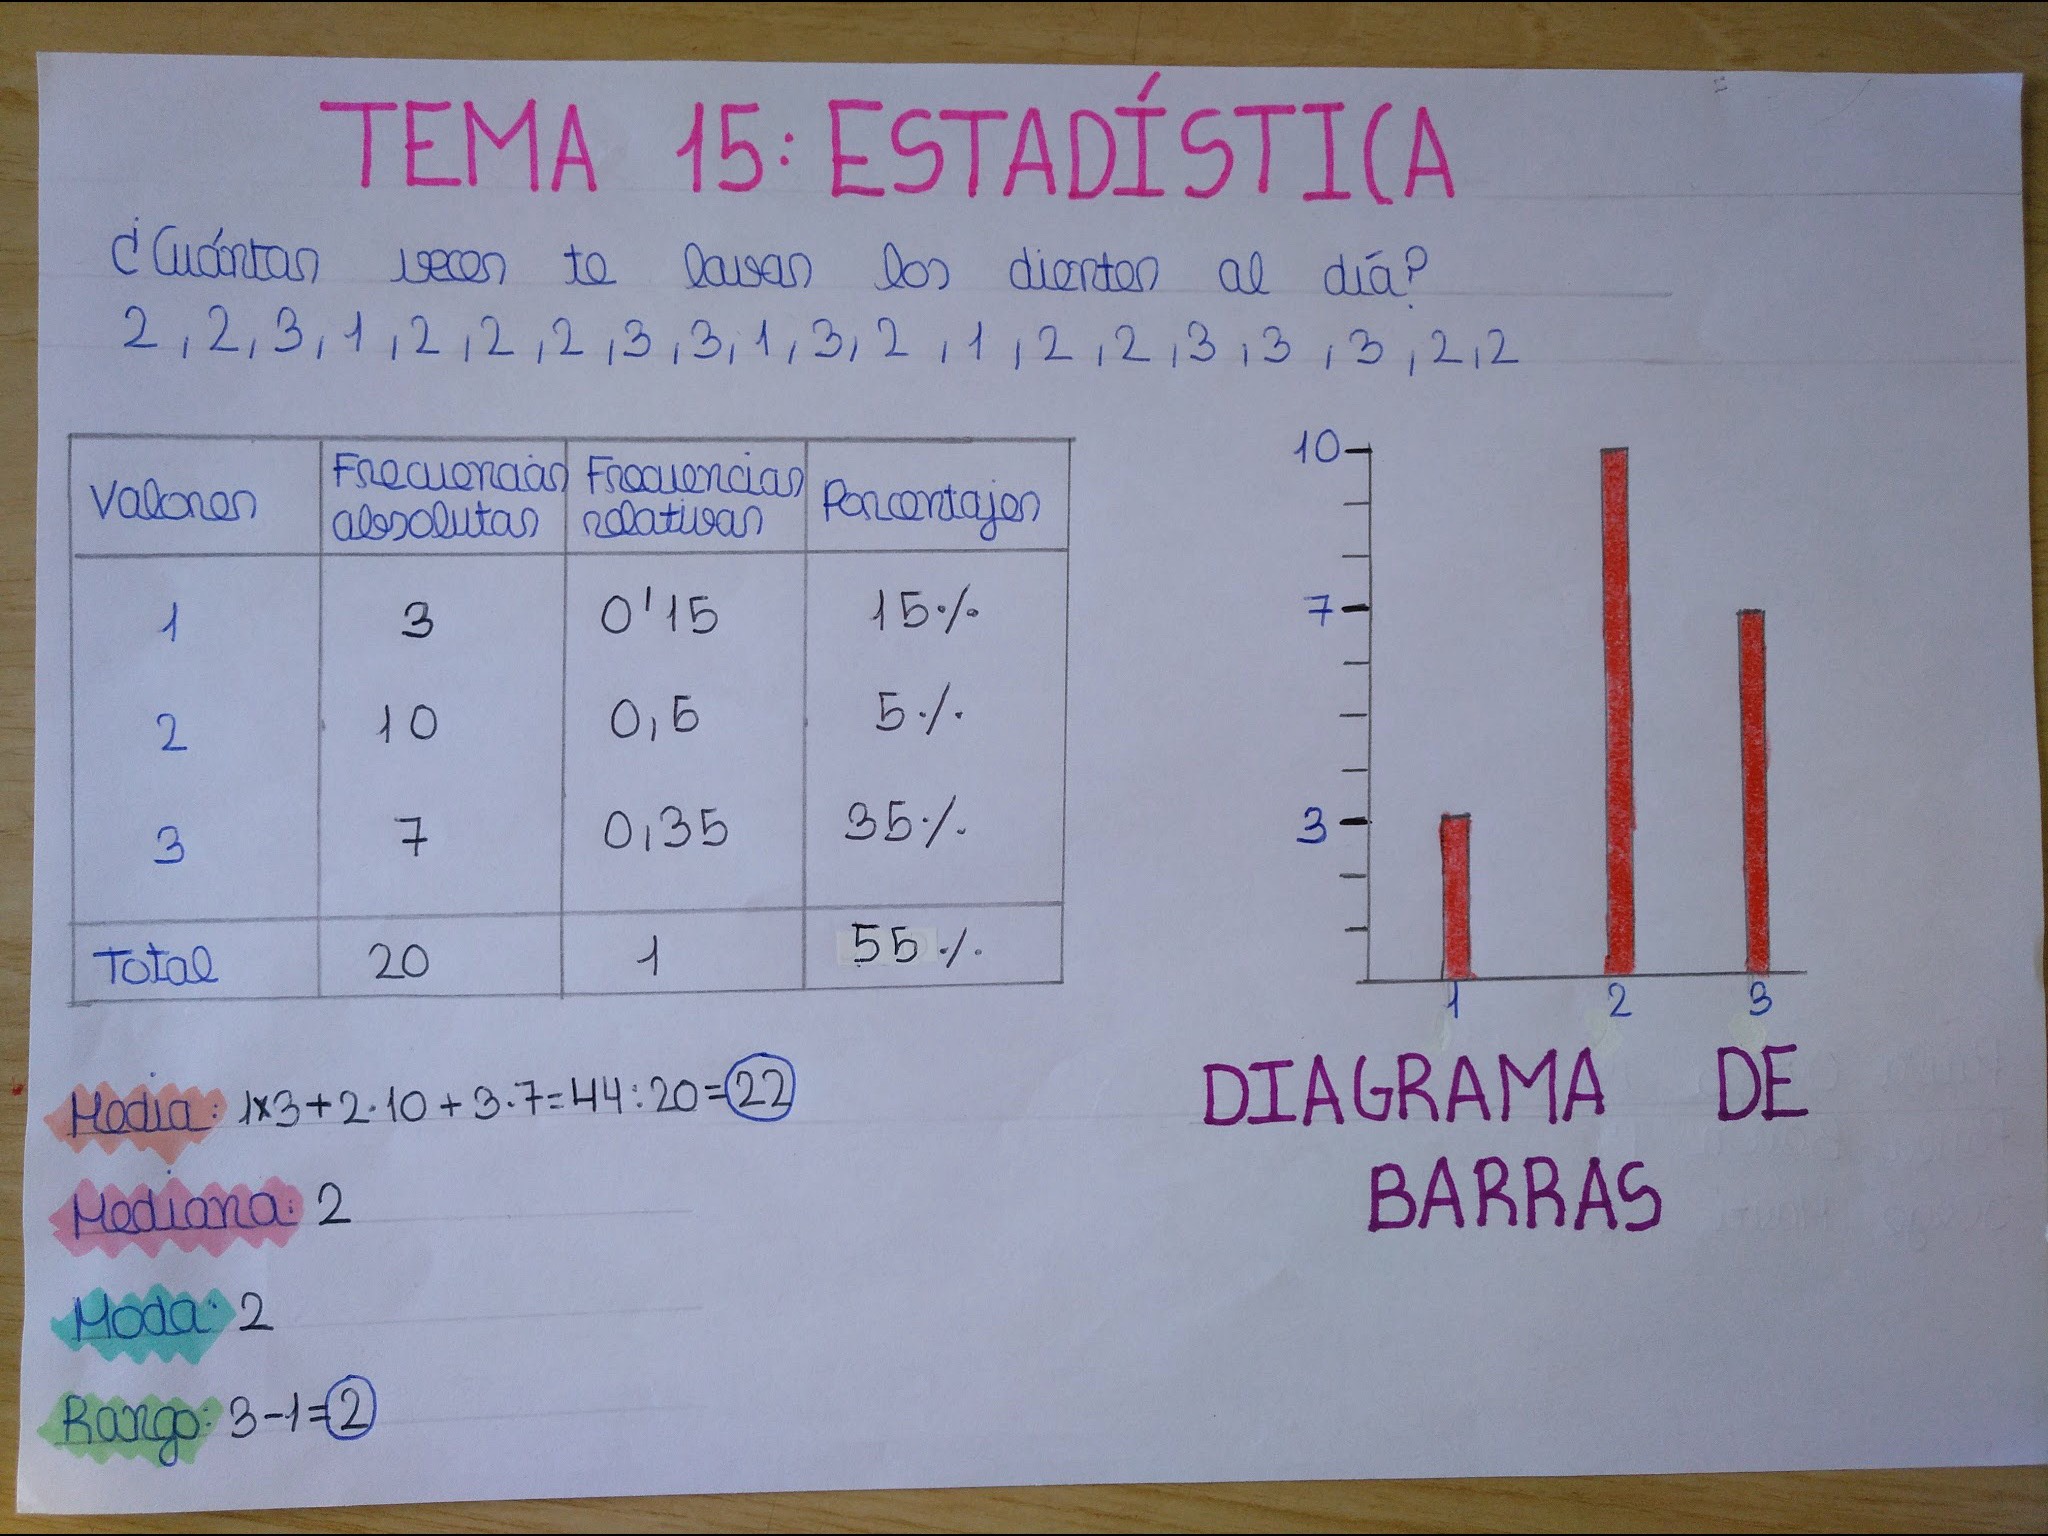 TEMA 15: ESTADÍSTICA
¿Cuántas veces te lavas los dientes al día?
2, 2, 3, 1, 2, 2, 2, 3, 3, 1, 3, 2, 1, 2, 2, 3, 3, 3, 2, 2
Valores Frecuencias absolutas Frecuencias relativas Porcentajes
1 3 0'15 15%
2 10 0,5 5%
3 7 0,35 35%
Total 20 1 55%
10
7
3
1 2 3
DIAGRAMA DE
BARRAS
Media: 1x3+2·10+3·7=44:20=22
Mediana: 2
Moda: 2
Rango: 3-1=2